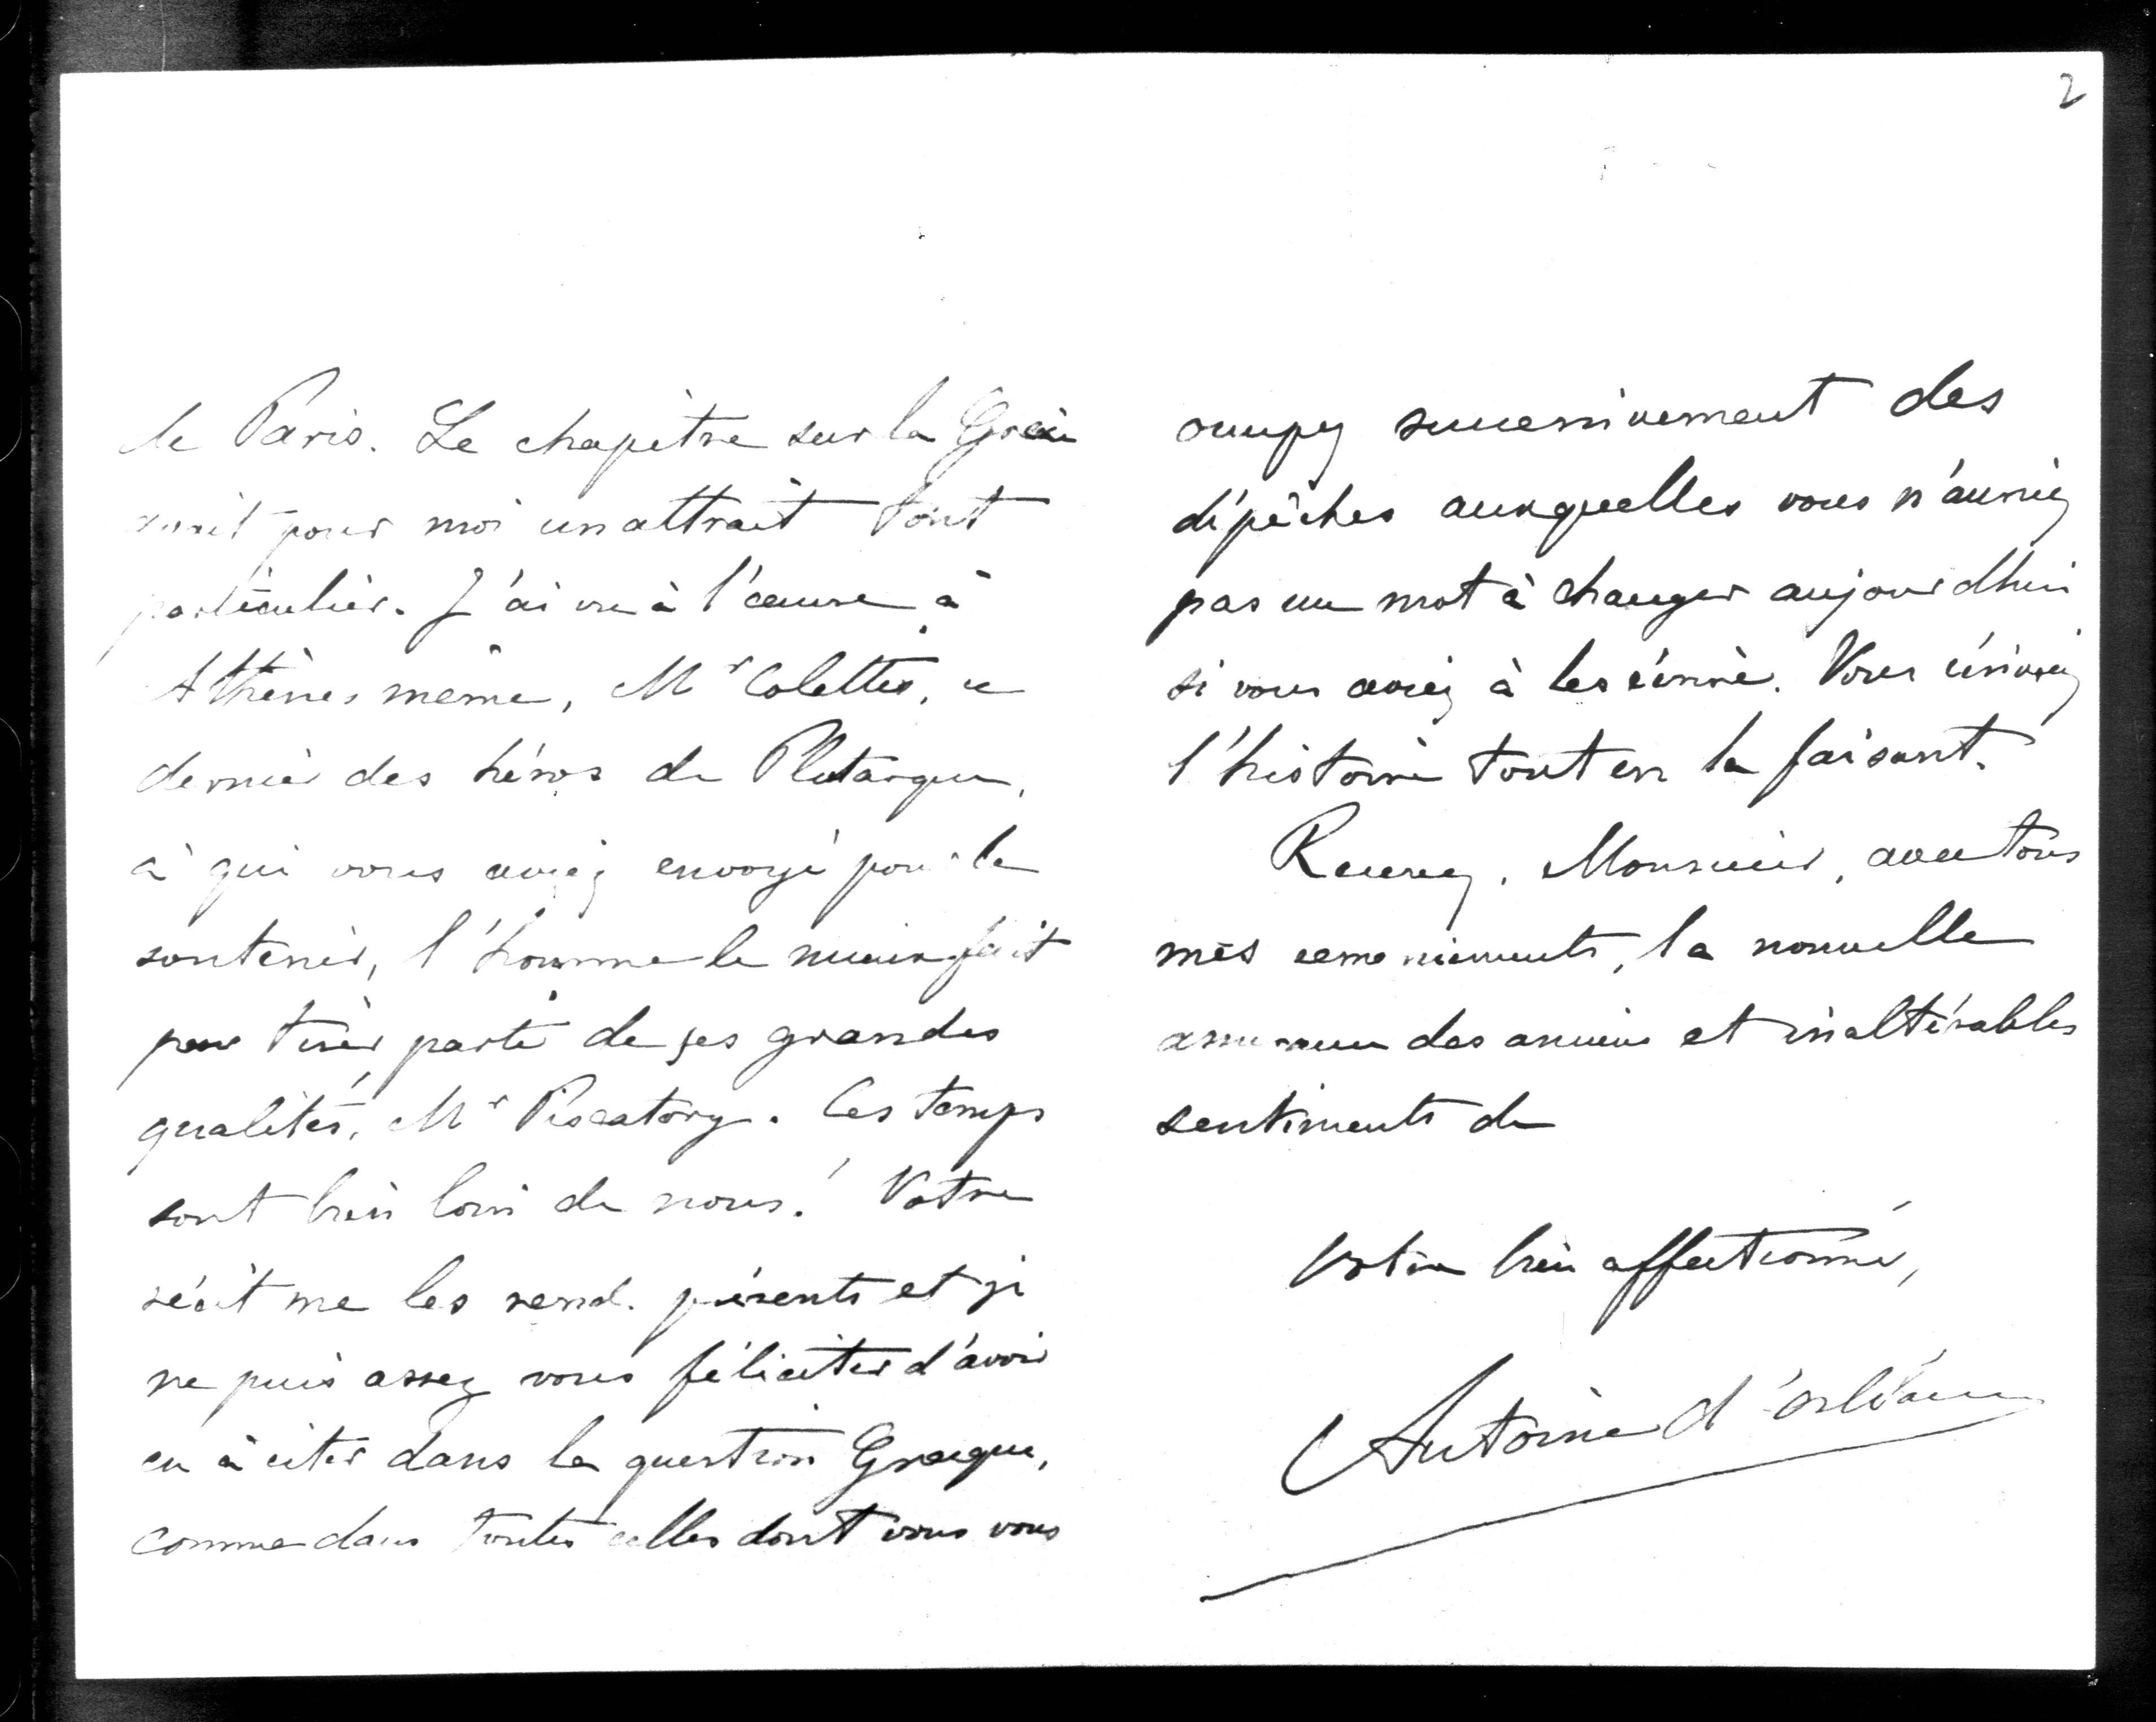 2
de Paris. Le chapitre sur la Grèce
avait pour moi un attrait tout
particulier. J'ai vu à l'œuvre à
Athènes même, Mr Colettis, ce
dernier des héros de Plutarque,
à qui vous aviez envoyé pour le
soutenir, l'homme le mieux fait
pour tirer parti de ses grandes
qualités, Mr Piscatory. Ces temps
sont bien loin de nous! Votre
récit me les rend présents et je
ne puis assez vous féliciter d'avoir
eu à citer dans la question Grecque,
comme dans toutes celles dont vous vous
occupez successivement des
dépêches auxquelles vous n'auriez
pas un mot à changer aujourdhui
si vous aviez à les écrire. Vous écriviez
l'histoire tout en la faisant.
Recevez, Monsieur, avec tous
mes remerciements, la nouvelle
assurance des anciens et inaltérables
sentiments de
Votre bien affectionné,
Antoine d'Orléans